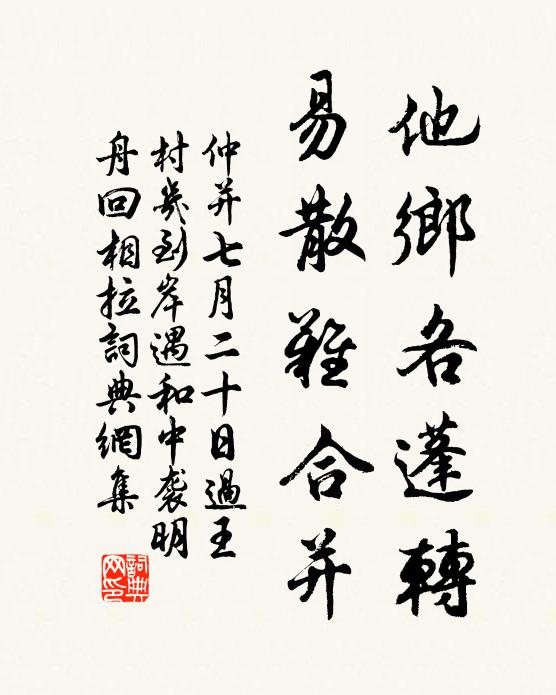 他鄉各蓬轉
易散難合并
仲并七月二十日過王
村幾到岸遇和中襲明
舟回相拉詞典網集
詞典网印